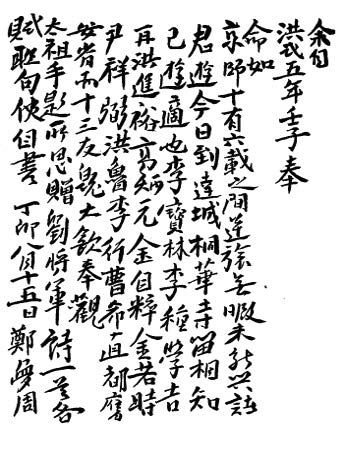 余自
洪武五年壬子奉
命如
京師十有六載之間道旅無暇未能與諸
君遊今日到達城桐華寺留相知
已遊適也李寶林李種學吉
再洪進裕高炳元金自粹金若時
尹祥弼洪魯李行曹希直都膺
安省而十三友大歓奉觀
太祖手題所思贈劉將軍詩一首各
賦聯句使自書丁卯八月十五日鄭夢周